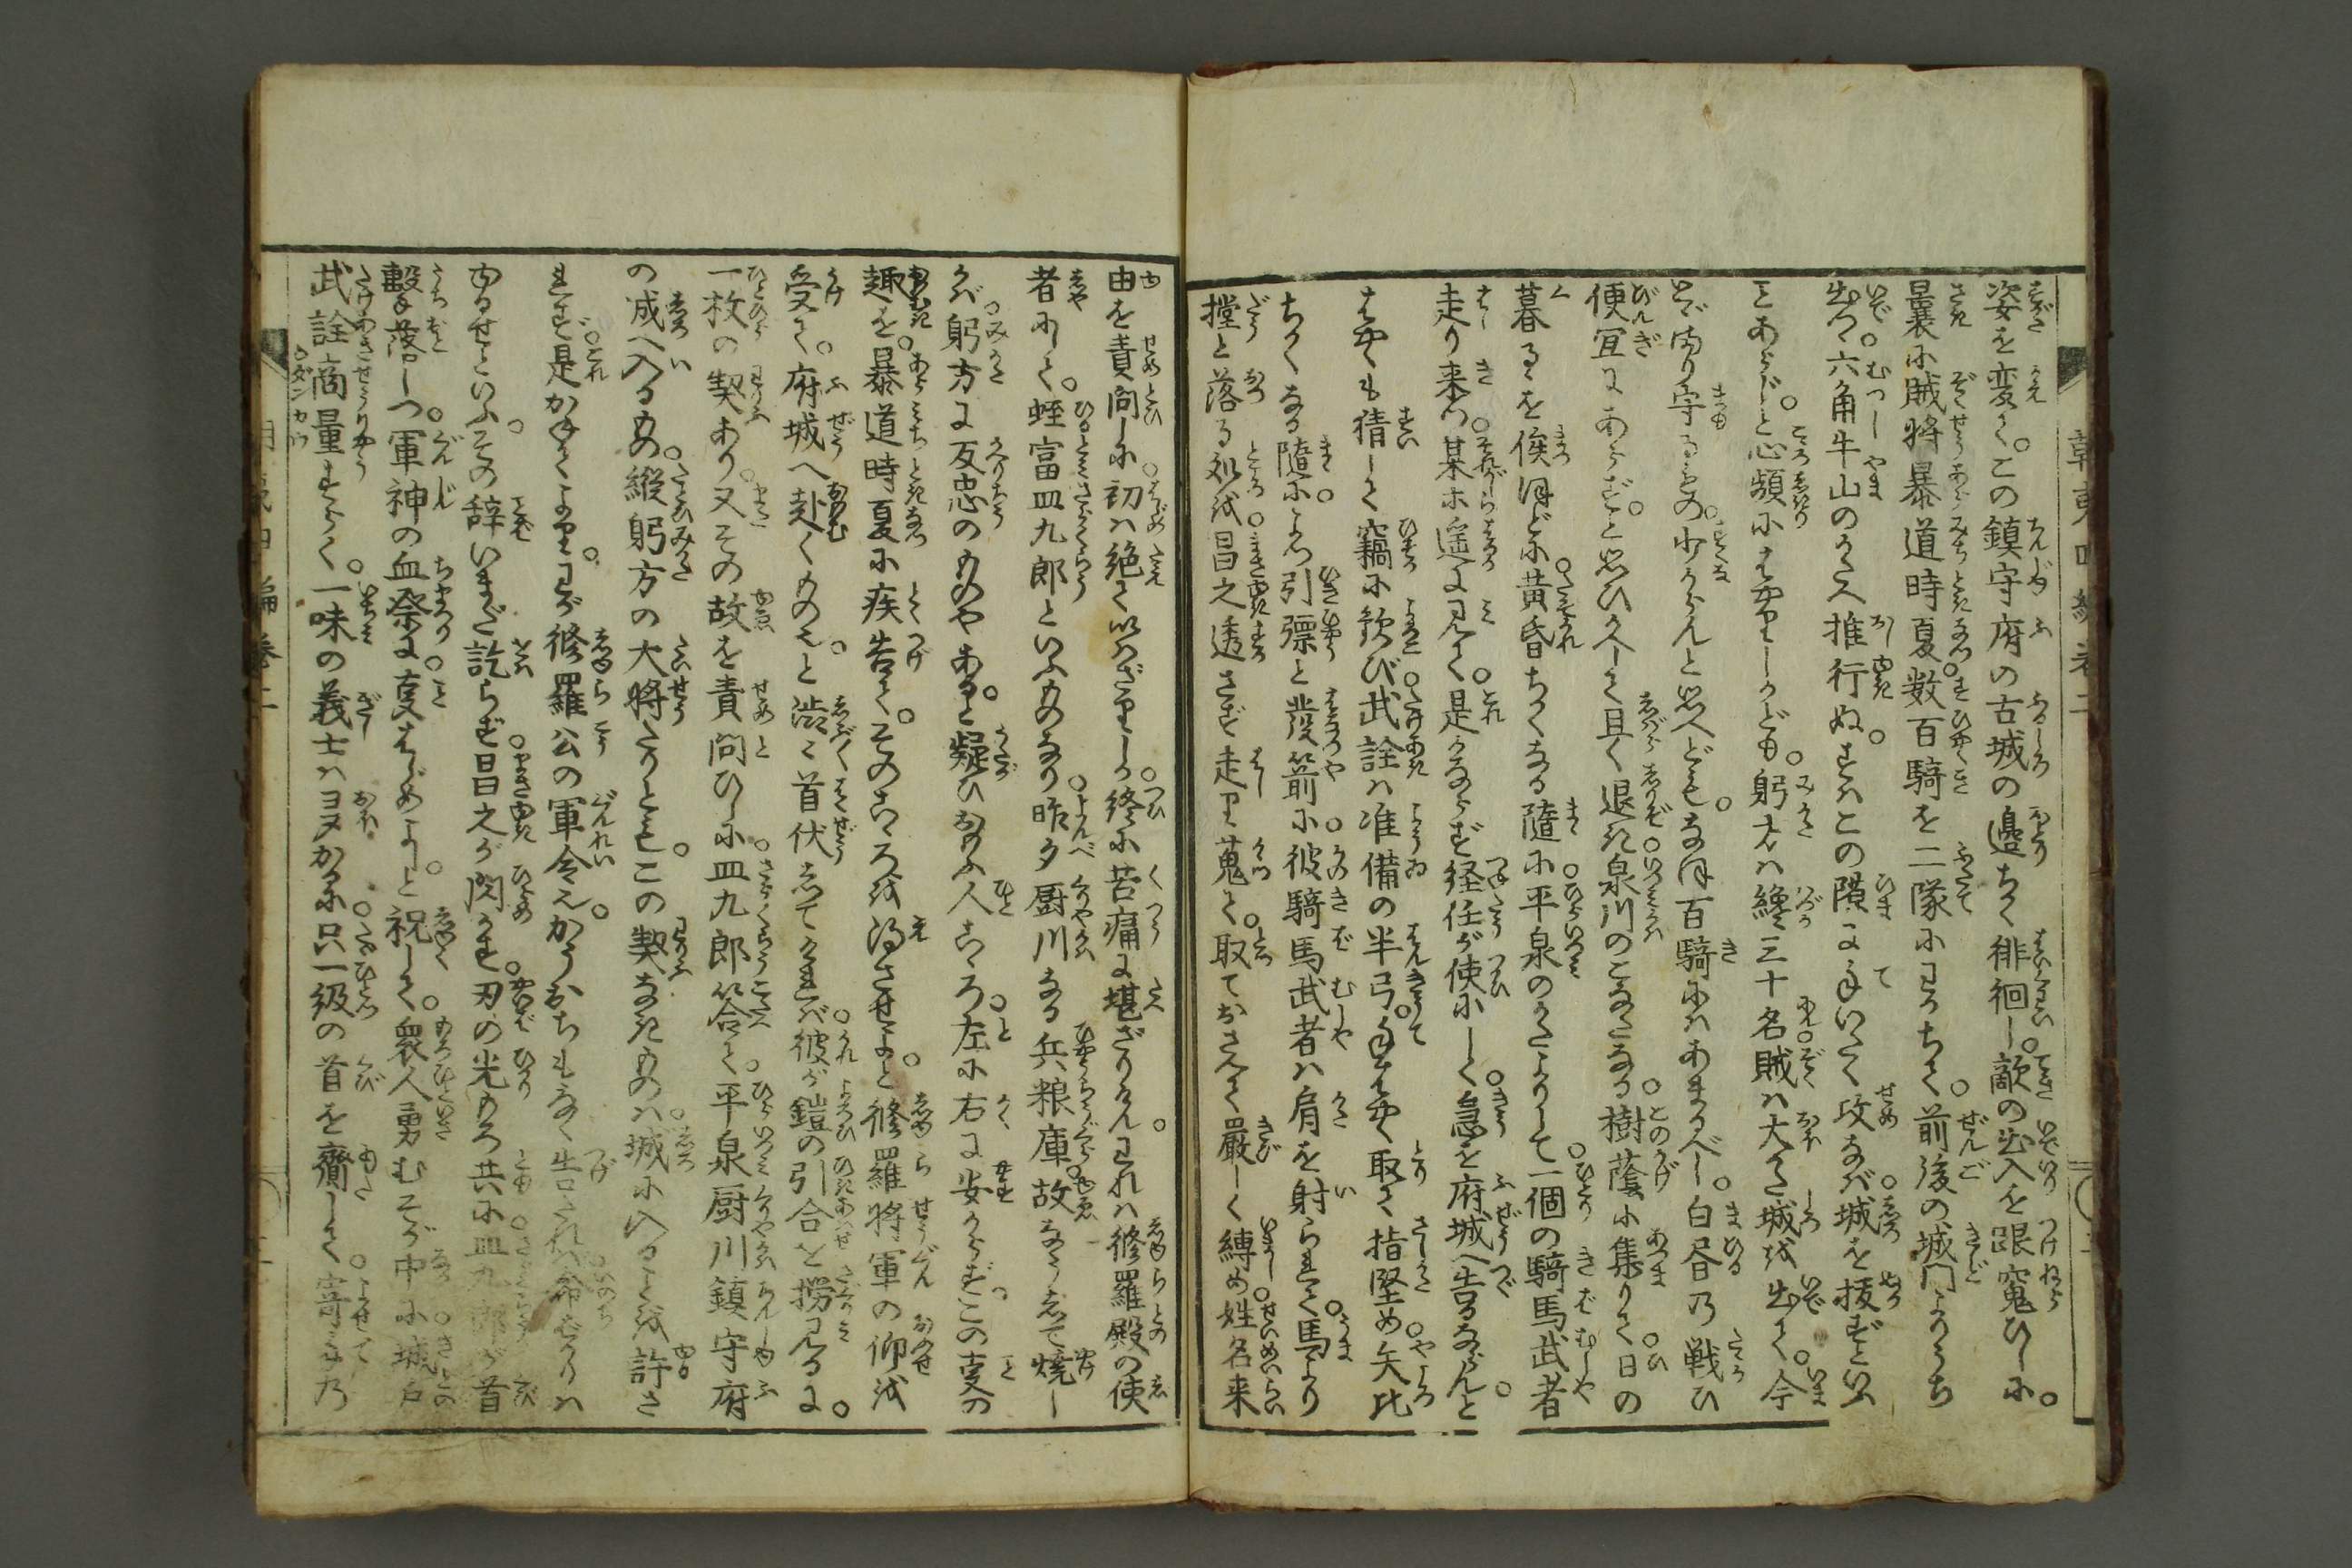 姿を変て。この鎮守府の古城の邉ちかく徘徊し。敵の出入を跟窺ひしに。
曩に賊将暴道時夏数百騎を二隊にわかちて。前後の城門よりうち
出て。六角牛山のかたへ推行ぬ。さればこの隙に手いたく攻なば城を抜ずといふ
ことあらじ。と心頻にはやりしかども。躬方は纔三十名賊は大かた城を出て。今
とゞまり守るもの。少からんと思へども。なほ百騎にはあまるべし。白昼の戦ひ
便宜にあらず。と思ひかへして且く退き泉川のこなたなる。樹蔭に集りて。日の
暮るを俟ほどに。黄昏ちかくなる隨に。平泉のかたよりして。一個の騎馬武者
走り来つ。某等遥に見て。是かならず経任が使にして。急を府城へ告るならんと。
はやくも猜して竊に歓び。武詮は准備の半弓。手はやく取て指堅め。矢比
ちかくなる隨に。よつ引彍と發箭に。彼騎馬武者は肩を射られて。馬より
撞と落る処を。昌之透さず走り蒐て。取ておさえて嚴しく縛め。姓名来
由を責問しに。初は絶ていはざりしが。終に苦痛に堪ざりけん。われは修羅殿の使
者にして。蛭富皿九郎といふものなり。昨夕厨川なる兵粮庫。故なうして焼し
かば。躬方に反忠のものやある。と疑ひおもふ人こゝろ。左に右に安からず。この事の
趣を。暴道時夏に疾告て。そのこゝろを得させよ。と修羅将軍の仰を
受て。府城へ赴くものぞ。と渋々首伏してければ。彼が鎧の引合を撈見るに。
一枚の契あり。又その故を責問ひしに。皿九郎答て。平泉厨川鎮守府
の城へ入るもの。縦躬方の大将たりとも。この契なきものは。城に入ることを許さ
れず。是かねてより。わが修羅公の軍令也。かうおちもなく告たれば。命ばかりは
ゆるせといふ。その辞いまだ訖らず。昌之が閃かす。刃の光もろ共に。皿九郎が首
撃落しつ。軍神の血祭に。事はじめよし。と祝して。衆人勇むそが中に。城戸
武詮商量すらく。一味の義士はヨヌかるに。只一級の首を齎して。寄手の